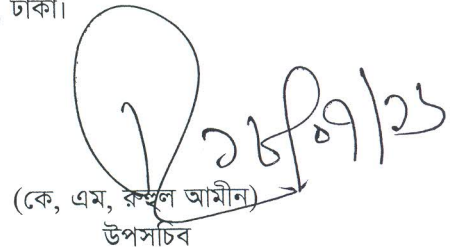 ঢাকা।
১৮/০৭/১৬
(কে, এম, রুহুল আমীন)
উপসচিব